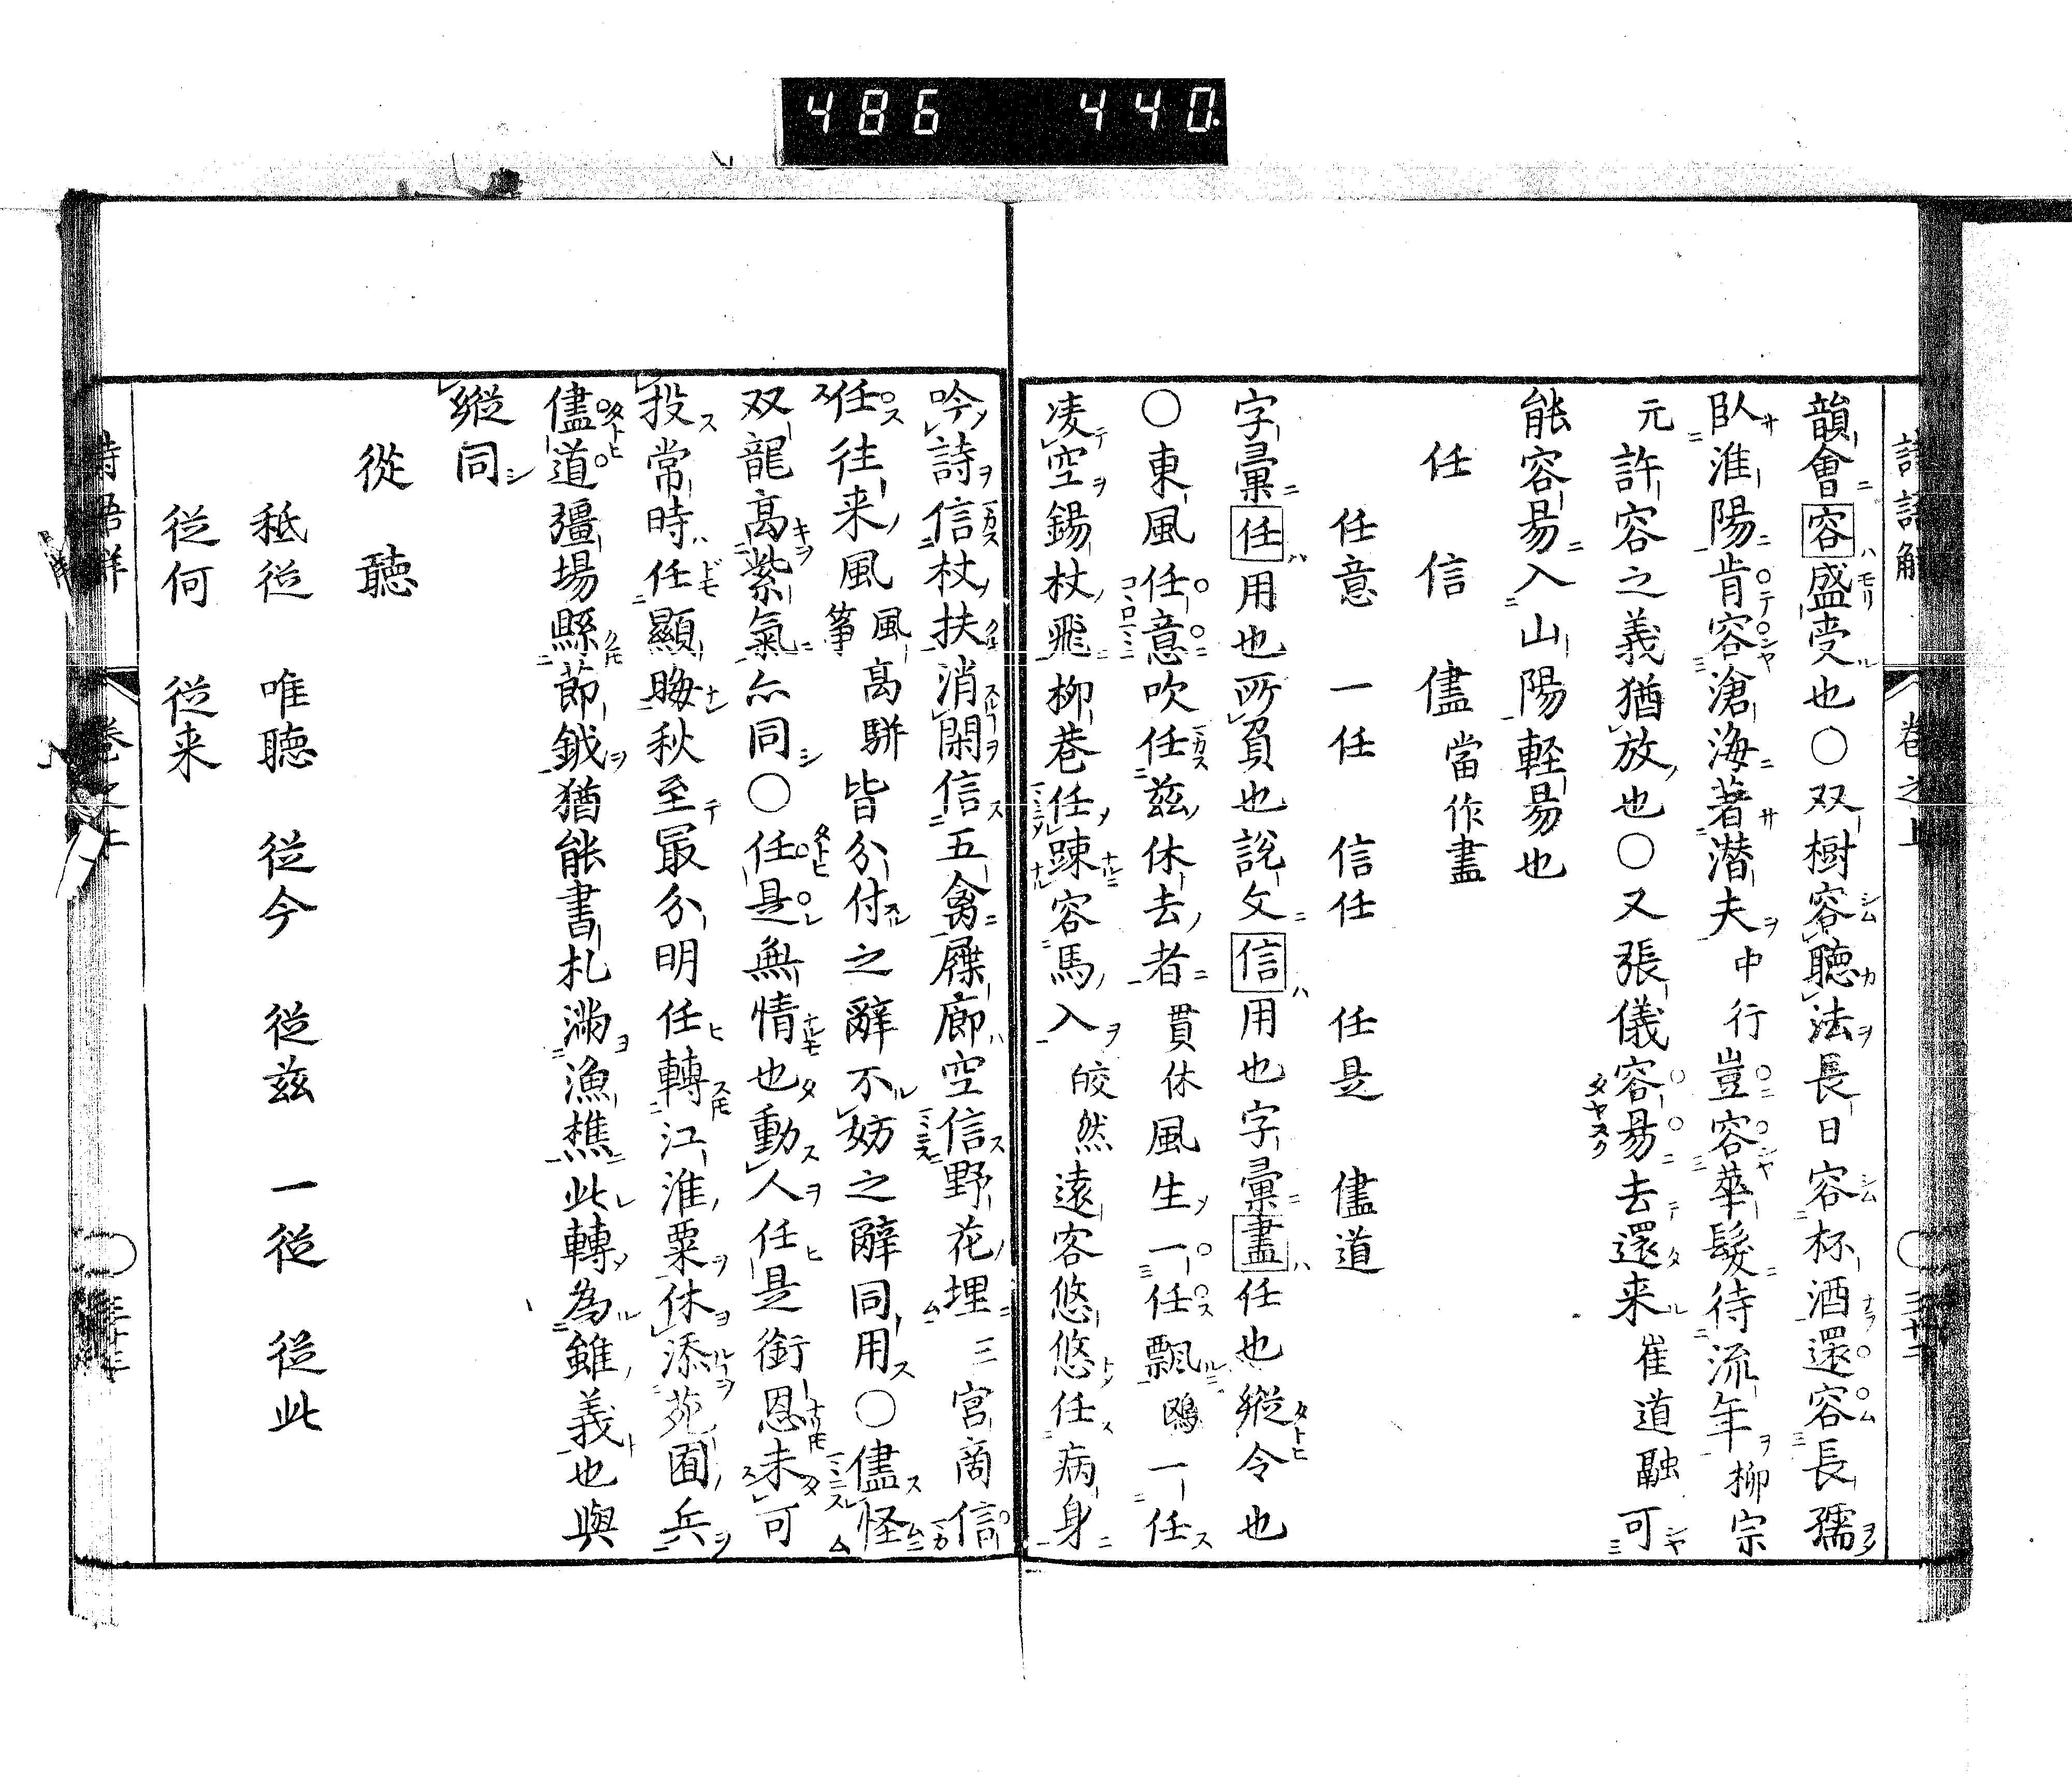 486 440
詩語解 卷之上 ○ 三十二
韻會容盛受也○双樹容聴法長日容杯酒還容長孺
臥淮陽肯容滄海著潜夫中行豈容華髮待流年柳宗
元許容之義猶放也○又張儀容易去還来崔道融可
能容易入山陽軽易也
任 信 儘當作盡
任意 一任 信任 任是 儘道
字彙任用也所負也說文信用也字彙盡任也縱令也
○東風任意吹任茲休去者貫休風生一任飄鴎一任
凌空錫杖飛柳巷任踈容馬入皎然遠客悠悠任病身
吟詩信杖扶消閑信五禽屧廊空信野花埋三宮商信
任往来風風箏高駢皆分付之辭不妨之辭同用○儘怪
双龍高紫氣亦同○任是無情也動人任是銜恩未可
投常時任顯晦秋至最分明任轉江淮粟休添苑囿兵
儘道彊場縣節鉞猶能書札滿漁樵此轉為雖義也與
縱同
從 聴
秪從 唯聴 從今 從茲 一從 從此
從何 從来
卷之上 ○ 三十三